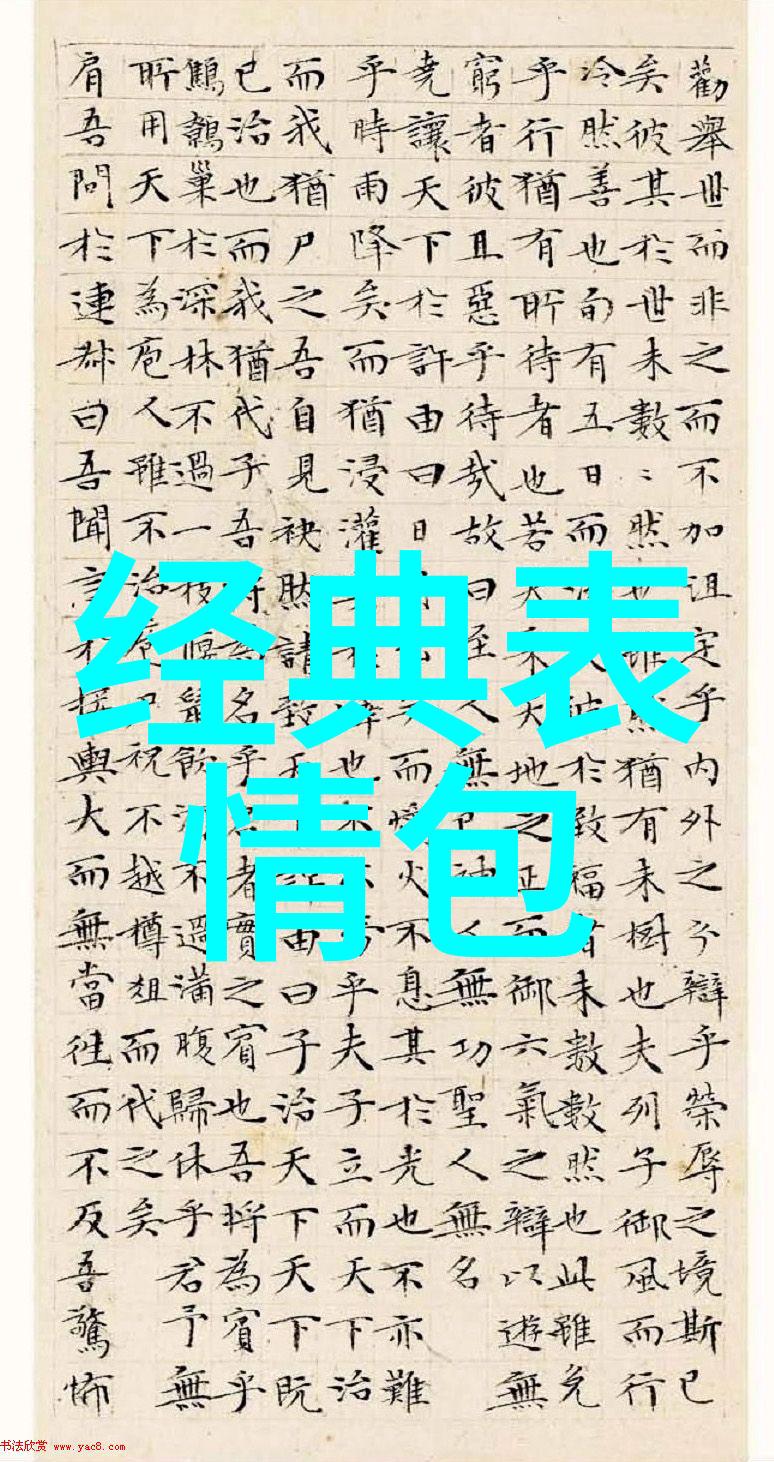 勸舉世而非之而不加沮定乎內外之分辯乎榮辱之境斯已
矣彼其於世未數〻然也雖然猶有未樹也夫列子御風而行
冷然善也旬有五日而後反彼於致福者未數數然也此雖免
乎行猶有所待者也若夫乘天地之正而御六氣之辯以遊無
窮者彼且惡乎待哉故曰至人無己神人無功聖人無名
堯讓天下於許由曰日月出矣而爝火不息其於光也不亦難
乎時雨降矣而猶浸灌其於澤也不亦勞乎夫子立而天下治
而我猶尸之吾自見缺然請致天下許由曰子治天下天下既
已治也而我猶代子吾將為名乎名者實之賓也吾將為賓乎
鷦鷯巢於深林不過一枝偃鼠飲河不過滿腹歸休乎君予無
所用天下為庖人雖不治庖尸祝不越樽俎而代之矣
肩吾問於連叔曰吾聞言於接輿大而無當往而不反吾驚怖
经典表
情包
书法欣赏 www.yac8.com